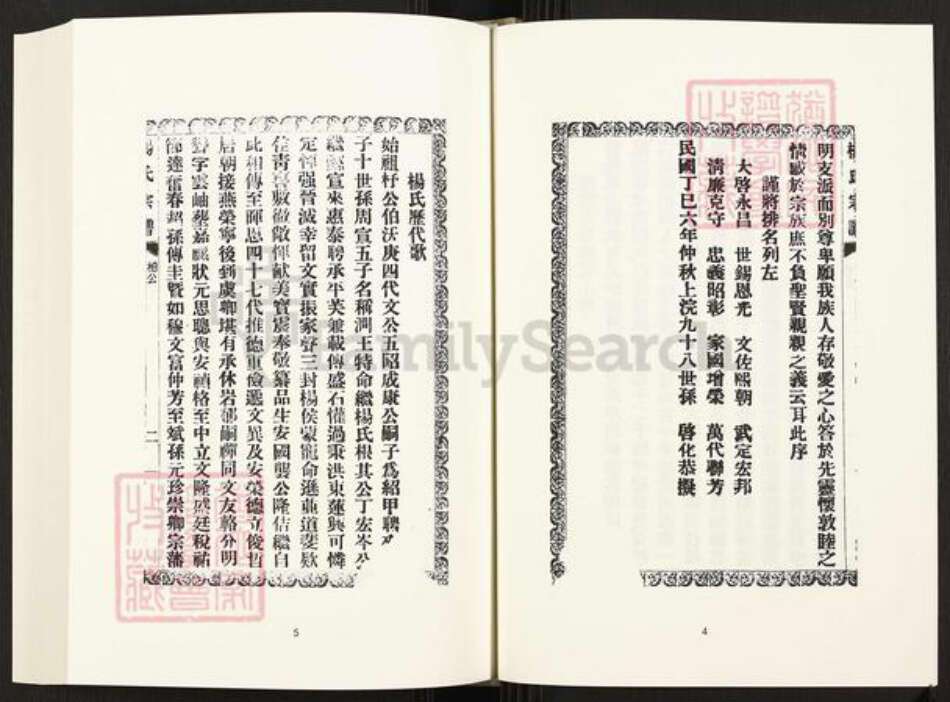 明支派而別尊卑願我族人存敬愛之心答於先靈懷敦睦之
情誼於宗族庶不負聖賢親親之義云耳此序
謹將排名列左
大啓永昌 世錫恩光 文佐熙朝 武定宏邦
淸廉克守 忠義昭彰 家國增榮 萬代聯芳
民國丁巳六年仲秋上浣九十八世孫 啓化恭撰
4
楊氏歷代歌
始祖杼公伯沃庚四代文公五昭成康公嗣子爲紹甲聘
子十世孫周宣五子名稱澗王特命繼楊氏根其公丁宏岑
繼 宣來惠泰聘承平芙兼載傳盛石懽過秉洪東蓮興可憐
定悍强晉滅幸留文實振家聲三封楊侯蒙寵命遜 道斐欵
佳靑 徽敞惲猷美寶震奉敬纂品生安國襲公隆佶繼自
此相傳至暉恩四十七代推德重儉遜文異及安榮德立俊哲
唐朝接燕榮寧後到虞卿琪有承休岩郁嗣禪同文友輅分明
字雲岫 狀元思聰與安 格至中立文隆盛廷稅祐
達奮春 孫傳圭曁如穆文富仲芳至斌孫元珍崇卿宗藩
楊氏宗譜
柏公
二
5
FamilySearch